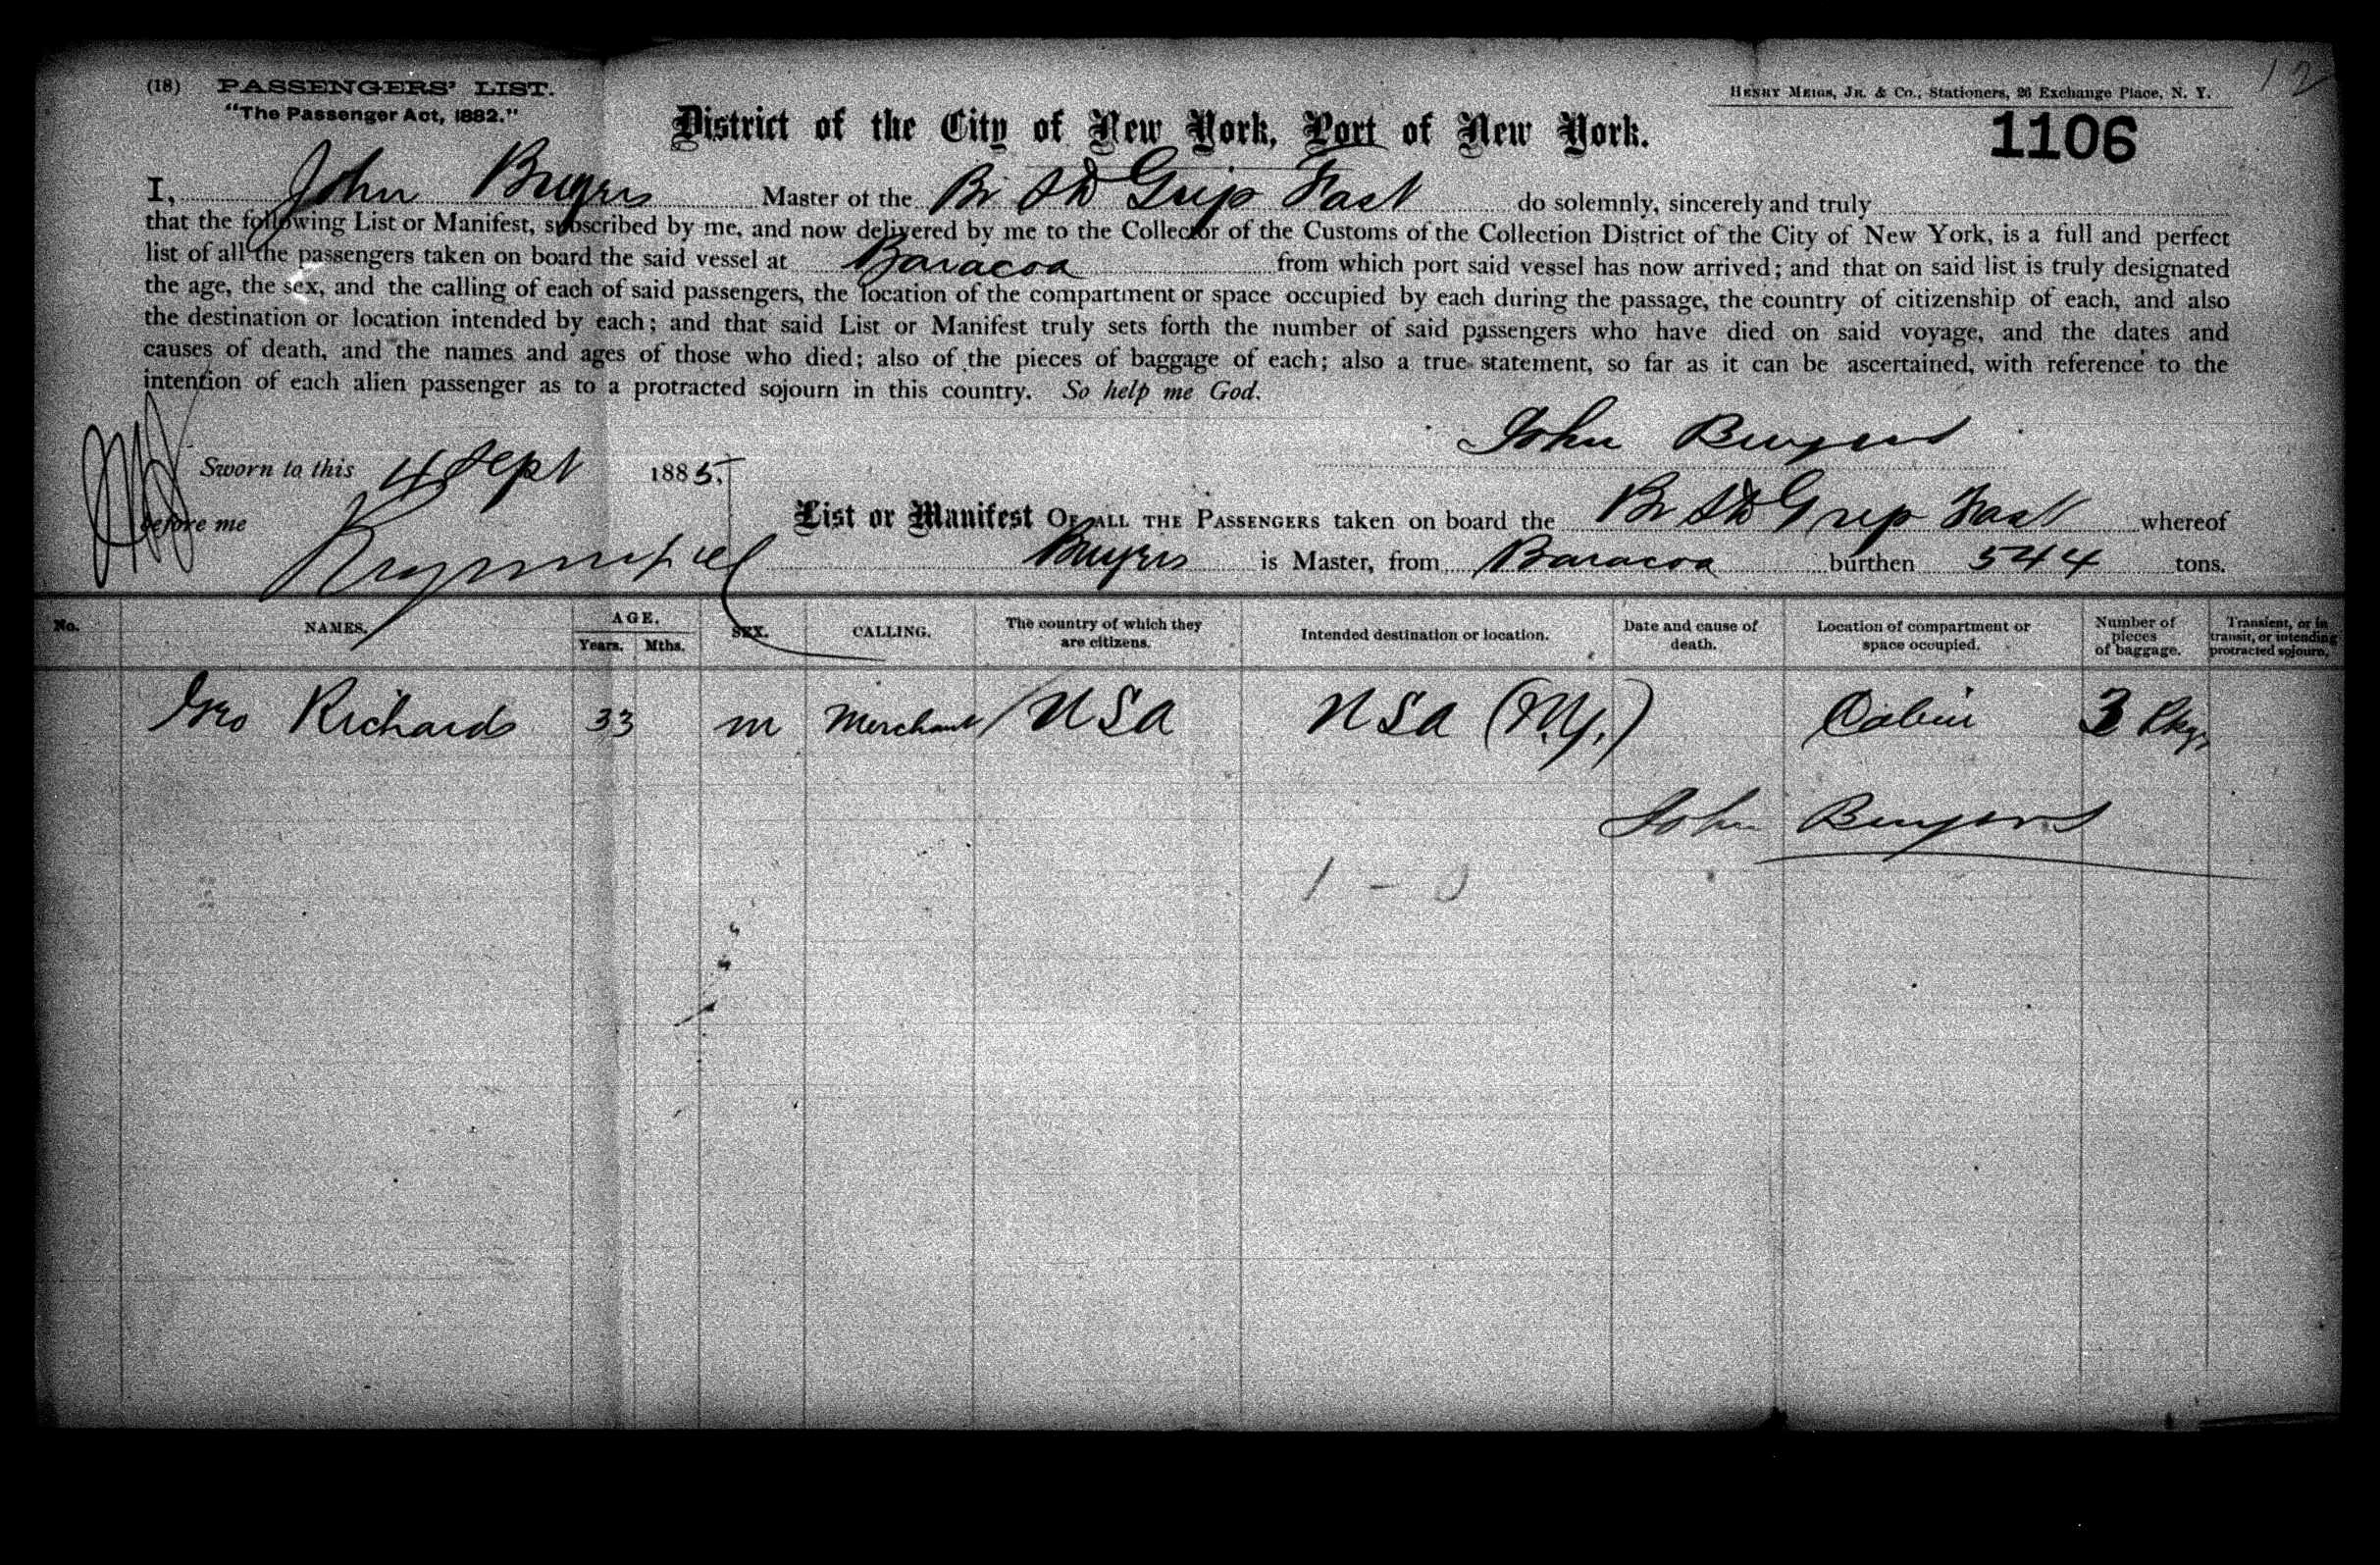 12
(18) PASSENGERS' LIST.
"The Passenger Act, 1882."
HENRY MEIGS, JR. & Co., Stationers, 26 Exchange Place, N. Y.
District of the City of New York, Port of New York.
1106
I, John Bruyers Master of the Br SS Grip Fast do solemnly, sincerely and truly
that the following List or Manifest, subscribed by me, and now delivered by me to the Collector of the Customs of the Collection District of the City of New York, is a full and perfect
list of all the passengers taken on board the said vessel at Baracoa from which port said vessel has now arrived; and that on said list is truly designated
the age, the sex, and the calling of each of said passengers, the location of the compartment or space occupied by each during the passage, the country of citizenship of each, and also
the destination or location intended by each; and that said List or Manifest truly sets forth the number of said passengers who have died on said voyage, and the dates and
causes of death, and the names and ages of those who died; also of the pieces of baggage of each; also a true statement, so far as it can be ascertained, with reference to the
intention of each alien passenger as to a protracted sojourn in this country. So help me God.
John
Sworn to this 4 Sept 1885.
before me
List or Manifest OF ALL THE PASSENGERS taken on board the Br SS Grip Fast whereof
is Master, from Baracoa burthen 544 tons.
No. NAMES. AGE. Years. Mths. SEX. CALLING. The country of which they are citizens. Intended destination or location. Date and cause of death. Location of compartment or space occupied. Number of pieces of baggage. Transient, or in transit, or intending protracted sojourn.
Geo Richards 33 m Merchant USA USA (N.Y.) Cabin 3 Pkgs
John
1 - 0